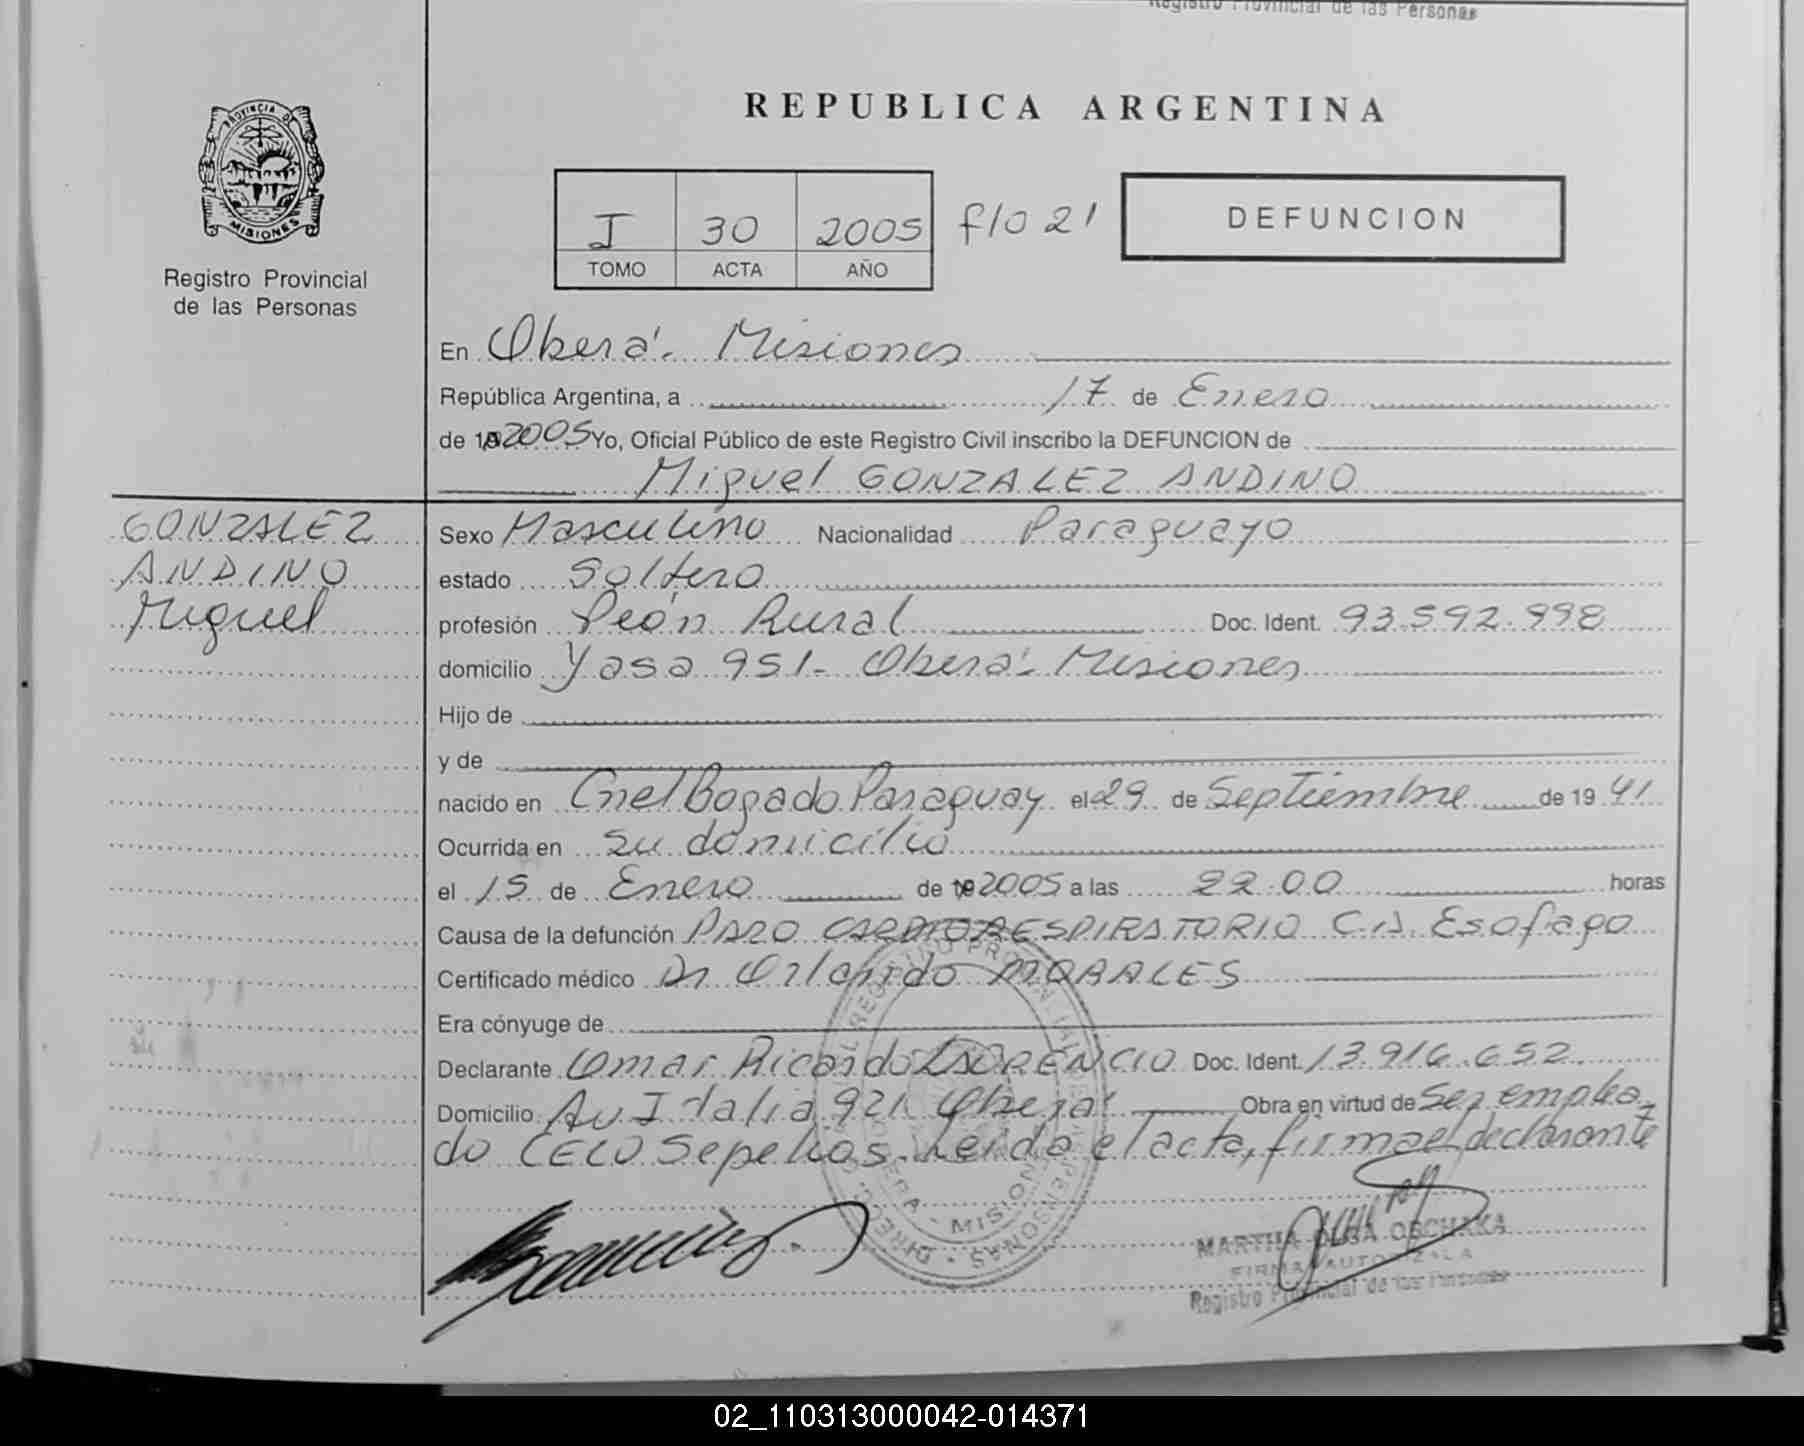 Registro Provincial de las Personas
PROVINCIA DE
MISIONES
Registro Provincial
de las Personas
REPUBLICA ARGENTINA
I 30 2005 f/o 21
TOMO ACTA AÑO
DEFUNCION
En Oberá - Misiones
República Argentina, a 17 de Enero
de 19 2005 Yo, Oficial Público de este Registro Civil inscribo la DEFUNCION de
Miguel GONZALEZ ANDINO
GONZALEZ
ANDINO
Miguel
Sexo Masculino Nacionalidad Paraguayo
estado Soltero
profesión Peón Rural Doc. Ident. 93.592.998
domicilio Yasa 951 - Oberá - Misiones
Hijo de
y de
nacido en Cnel Bogado Paraguay el 29 de Septiembre de 19 41
Ocurrida en su domicilio
el 15 de Enero de 19 2005 a las 22.00 horas
Causa de la defunción PARO CARDIORESPIRATORIO C.A. Esofago
Certificado médico Dr Orlando MORALES
Era cónyuge de
Declarante Omar Ricardo Doc. Ident. 13.916.652
Domicilio Av Italia 921 Oberá Obra en virtud de Ser emplea
do CELO Sepelios. Leída el acta, firma el declarante
MARTHA OLGA OBCHAKA
FIRMA AUTORIZADA
Registro Provincial de las Personas
02_110313000042-014371